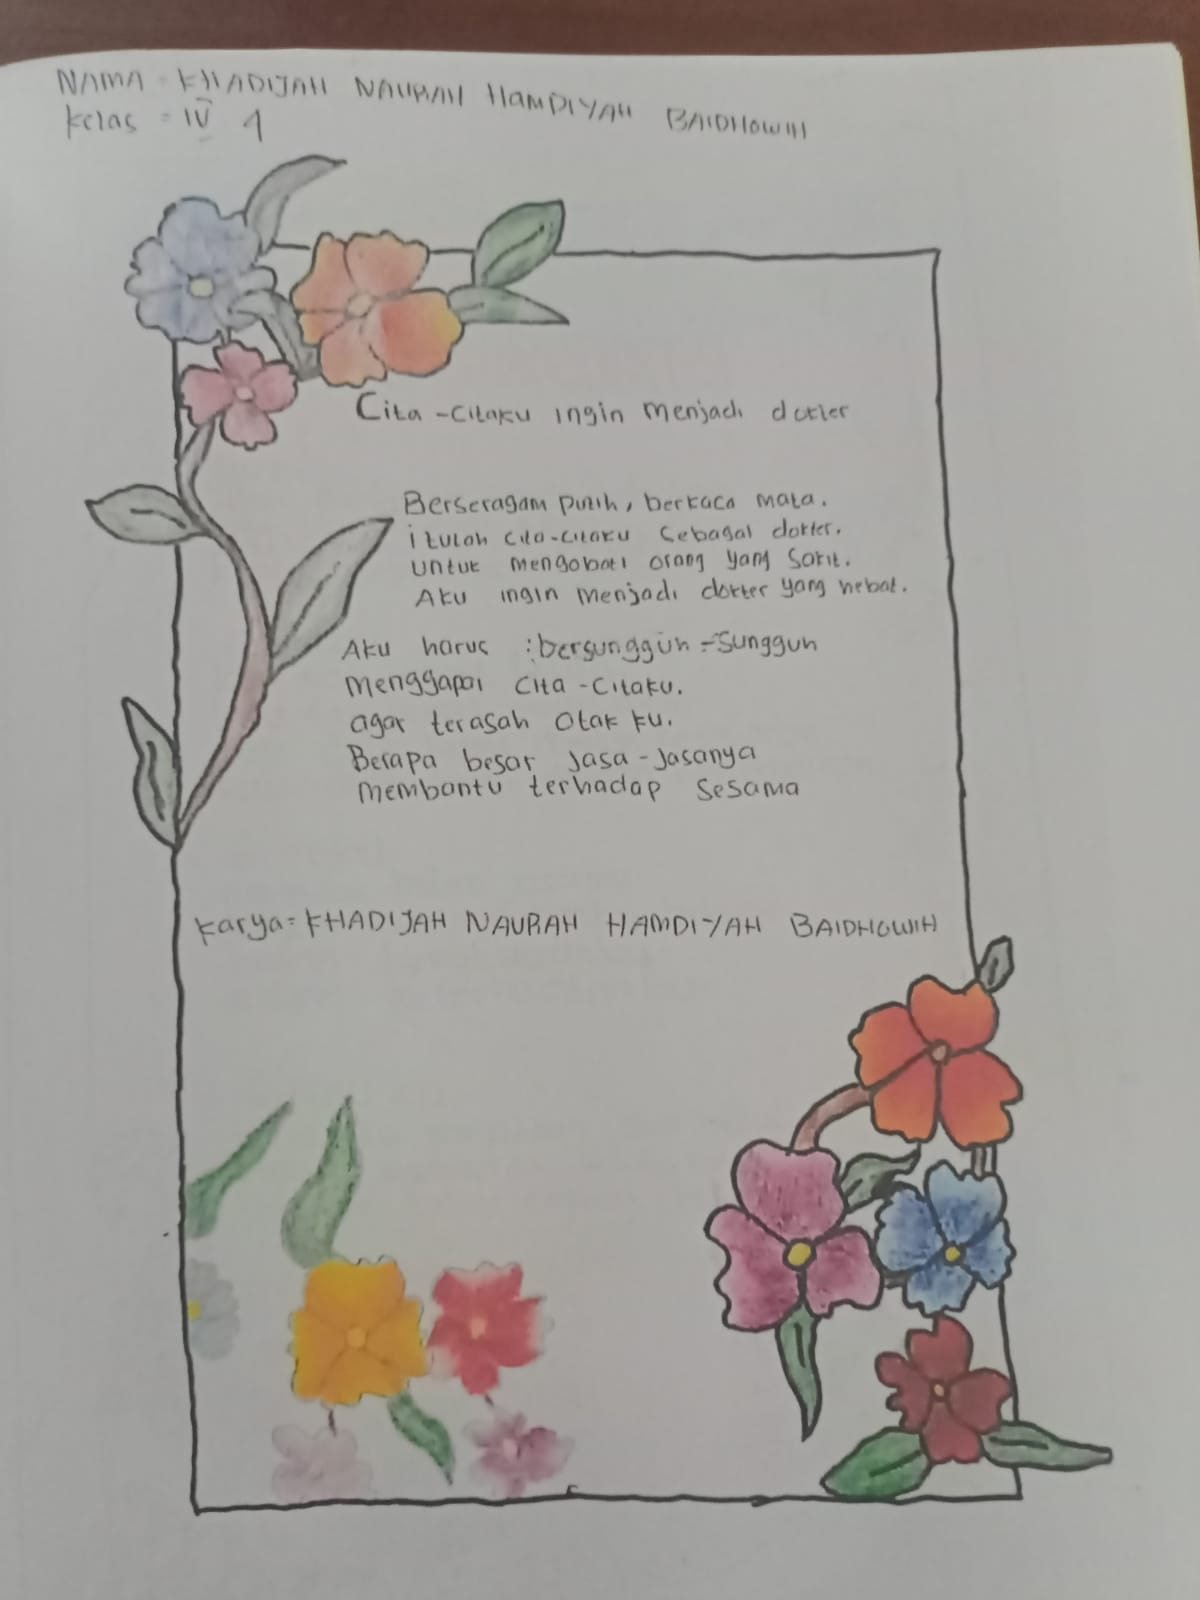 NAMA = KHADIJAH NAURAH HAMDIYAH BAIDHOWIH
Kelas = IV 4
Cita-citaku ingin menjadi dokter
Berseragam putih, berkaca mata.
itulah cita-citaku sebagai dokter.
untuk mengobati orang yang sakit.
Aku ingin menjadi dokter yang hebat.
Aku harus :bersungguh-sungguh
menggapai cita-citaku.
agar terasah otak ku.
Berapa besar jasa-jasanya
membantu terhadap sesama
karya = KHADIJAH NAURAH HAMDIYAH BAIDHOWIH